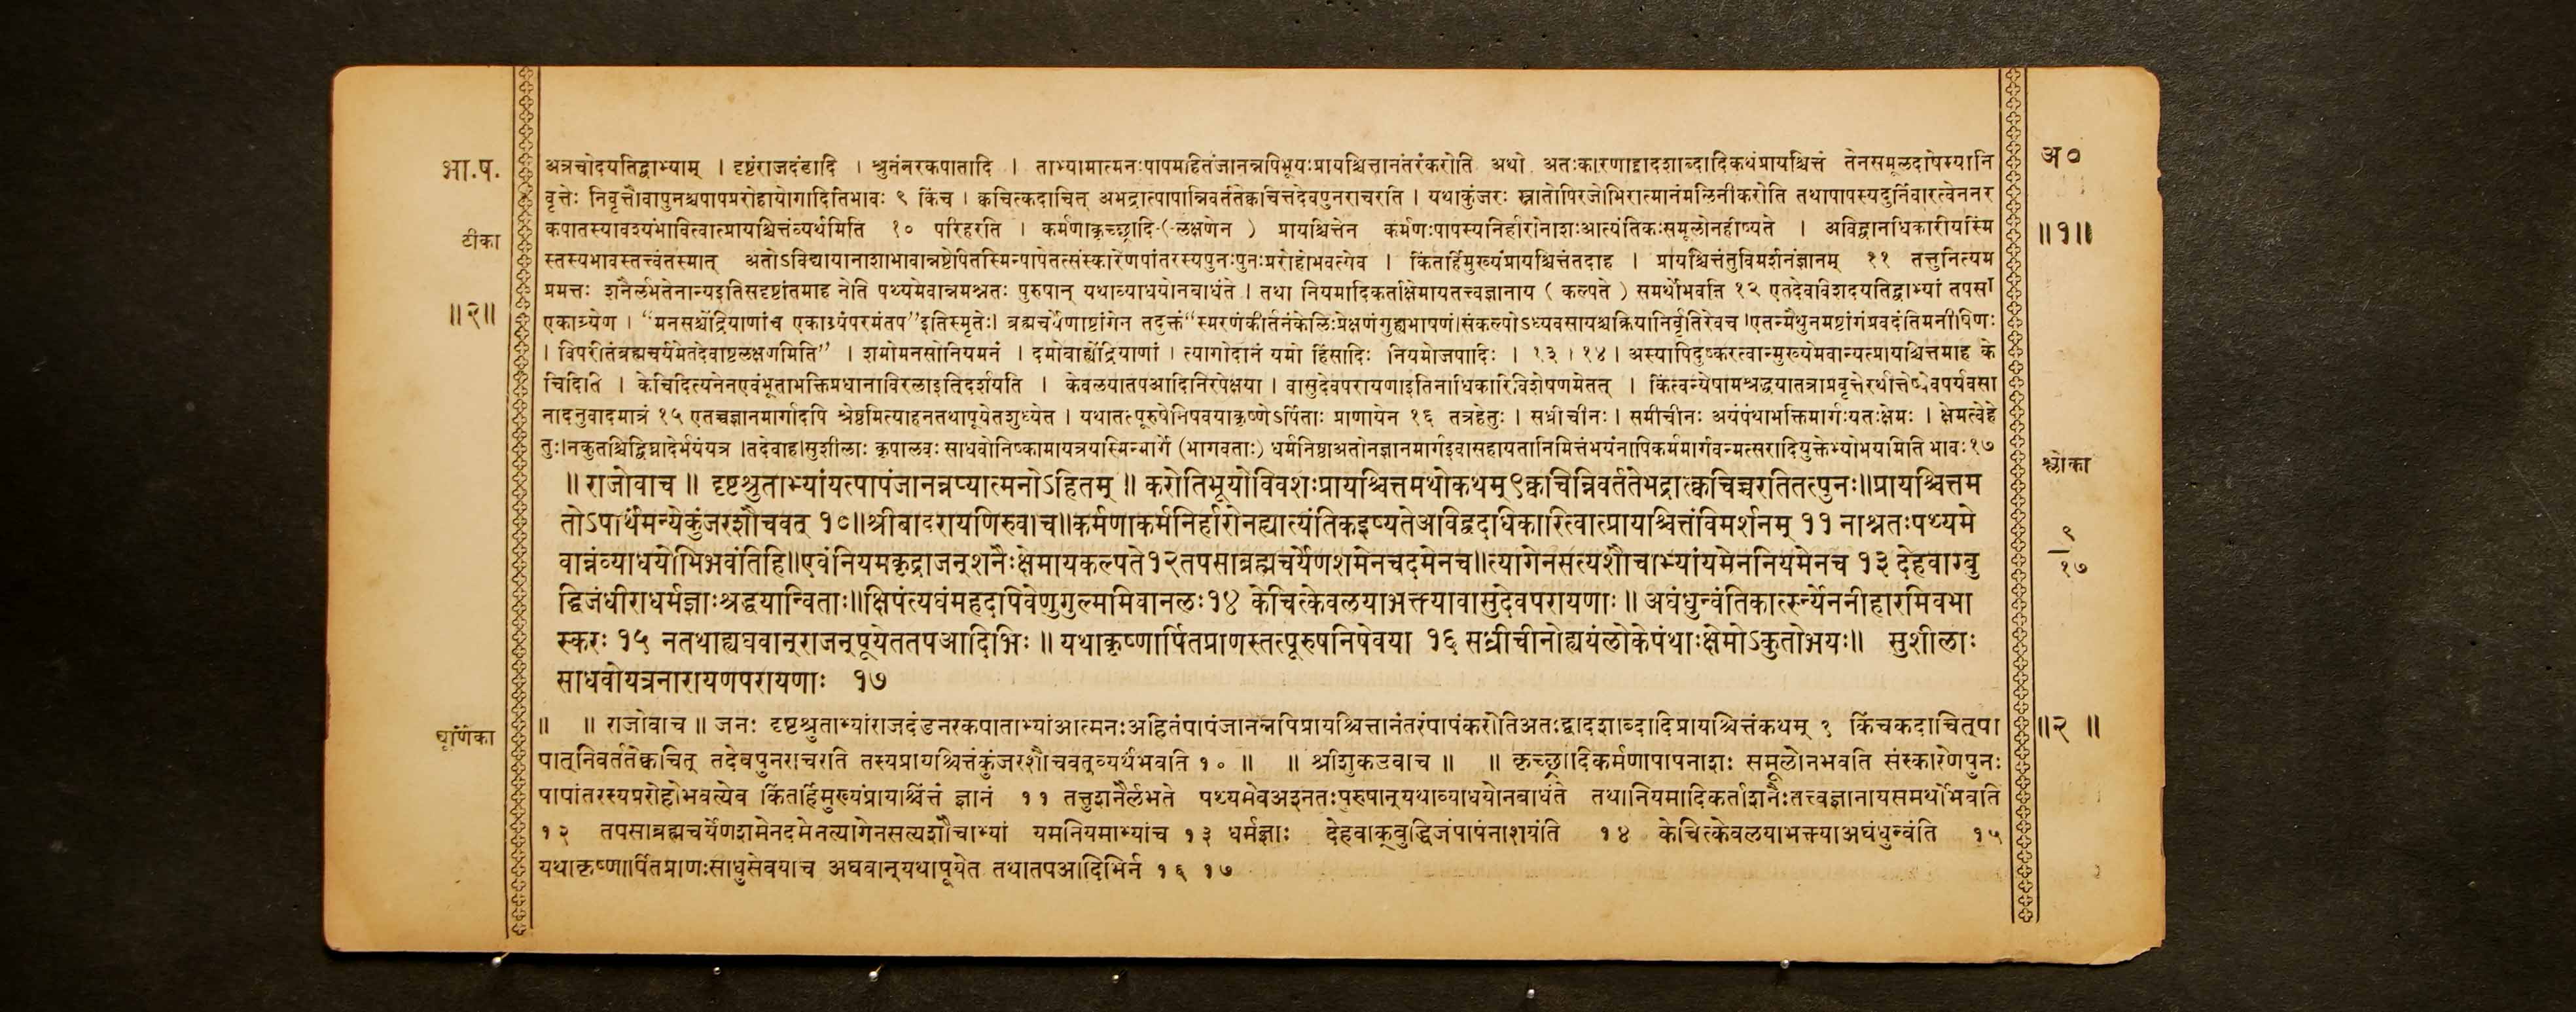 भा.ष.
टीका
॥२॥
चूर्णिका
अत्रचोदयतिद्वाभ्याम् । दृष्टंराजदंडादि । श्रुतंनरकपातादि । ताभ्यामात्मनःपापमहितंजानन्नपिभूयःप्रायश्चित्तानंतरंकरोति अथो अतःकारणाद्द्वादशाब्दादिकथंप्रायश्चित्तं तेनसमूलदोषस्यानि
वृत्तेः निवृत्तौवापुनश्चपापप्ररोहायोगादितिभावः ९ किंच । क्वचित्कदाचित् अभद्रात्पापान्निवर्ततेक्वचित्तदेवपुनराचरति । यथाकुंजरः स्नातोपिरजोभिरात्मानंमलिनीकरोति तथापापस्यदुर्निवारत्वेननर
कपातस्यावश्यंभावित्वात्प्रायश्चित्तंव्यर्थमिति १० परिहरति । कर्मणाकृच्छ्रादि-(-लक्षणेन ) प्रायश्चित्तेन कर्मणःपापस्यनिर्हारोनाशःआत्यंतिकःसमूलोनहीष्यते । अविद्वानधिकारीयस्मिं
स्तस्यभावस्तत्त्वंतस्मात् अतोऽविद्यायानाशाभावान्नष्टेपितस्मिन्पापेतत्संस्कारेणपांतरस्यपुनःपुनःप्ररोहोभवत्येव । किंतर्हिमुख्यंप्रायश्चित्तंतदाह । प्रायश्चित्तंतुविमर्शनंज्ञानम् ११ तत्तुनित्यम
प्रमत्तः शनैर्लभतेनान्यइतिसदृष्टांतमाह नेति पथ्यमेवान्नमश्नतः पुरुषान् यथाव्याधयोनबाधंते । तथा नियमादिकर्ताक्षेमायतत्त्वज्ञानाय ( कल्पते ) समर्थोभवति १२ एतदेवविशदयतिद्वाभ्यां तपसा
एकाग्र्येण । “मनसश्चेंद्रियाणांच एकाग्र्यंपरमंतप”इतिस्मृतेः। ब्रह्मचर्येणाष्टांगेन तदुक्तं“स्मरणंकीर्तनंकेलिःप्रेक्षणंगुह्यभाषणं।संकल्पोऽध्यवसायश्चक्रियानिर्वृतिरेवच।एतन्मैथुनमष्टांगंप्रवदंतिमनीषिणः
। विपरीतंब्रह्मचर्यमेतदेवाष्टलक्षणमिति” । शमोमनसोनियमनं । दमोबाह्येंद्रियाणां । त्यागोदानं यमो हिंसादिः ।नियमोजपादिः । १३ । १४ । अस्यापिदुष्करत्वान्मुख्यमेवान्यत्प्रायश्चित्तमाह के
चिदिति । केचिदित्यनेनएवंभूताभक्तिप्रधानाविरलाइतिदर्शयति । केवलयातपआदिनिरपेक्षया । वासुदेवपरायणाइतिनाधिकारिविशेषणमेतत् । किंत्वन्येषामश्रद्धयातत्राप्रवृत्तेरर्थात्तेष्वेवपर्यवसा
नादनुवादमात्रं १५ एतच्चज्ञानमार्गादपि श्रेष्ठमित्याहनतथापूयेतशुध्येत । यथातत्पूरुषनिषेवयाकृष्णेऽर्पिताः प्राणायेन १६ तत्रहेतुः । सध्रीचीनः । समीचीनः अयंपंथाभक्तिमार्गःयतःक्षेमः । क्षेमत्वेहे
तुः।नकुतश्चिद्विघ्नादेर्भयंयत्र ।तदेवाह।सुशीलाः कृपालवः साधवोनिष्कामायत्रयास्मिन्मार्गे (भागवताः) धर्मनिष्ठाअतोनज्ञानमार्गइवासहायतानिमित्तंभयंनापिकर्ममार्गवन्मत्सरादियुक्तेभ्योभयामिति भावः१७
॥ राजोवाच ॥ दृष्टश्रुताभ्यांयत्पापंजानन्नप्यात्मनोऽहितम् ॥ करोतिभूयोविवशःप्रायश्चित्तमथोकथम्९क्वचिन्निवर्ततेभद्रात्क्वचिच्चरतितत्पुनः॥प्रायश्चित्तम
तोऽपार्थमन्येकुंजरशौचवत् १०॥श्रीबादरायणिरुवाच॥कर्मणाकर्मनिर्हारोनह्यात्यंतिकइष्यतेअविद्वदधिकारित्वात्प्रायश्चित्तंविमर्शनम् ११ नाश्नतःपथ्यमे
वान्नंव्याधयोभिभवंतिहि॥एवंनियमकृद्राजन्शनैःक्षेमायकल्पते१२तपसाब्रह्मचर्येणशमेनचदमेनच॥त्यागेनसत्यशौचाभ्यांयमेननियमेनच १३ देहवाग्बु
द्धिजंधीराधर्मज्ञाःश्रद्धयान्विताः॥क्षिपंत्यघंमहदपिवेणुगुल्ममिवानलः१४ केचित्केवलयाभक्त्यावासुदेवपरायणाः ॥ अघंधुन्वंतिकार्त्स्न्येननीहारमिवभा
स्करः १५ नतथाह्यघवान्राजन्पूयेततपआदिभिः ॥ यथाकृष्णार्पितप्राणस्तत्पूरुषनिषेवया १६ सध्रीचीनोह्ययंलोकेपंथाःक्षेमोऽकुतोभयः॥ सुशीलाः
साधवोयत्रनारायणपरायणाः १७
॥ ॥ राजोवाच ॥ जनः दृष्टश्रुताभ्यांराजदंडनरकपाताभ्यांआत्मनःअहितंपापंजानन्नपिप्रायश्चित्तानंतरंपापंकरोतिअतःद्वादशाब्दादिप्रायश्चित्तंकथम् ९ किंचकदाचित्पा
पात्निवर्ततेक्वचित् तदेवपुनराचरति तस्यप्रायश्चित्तंकुंजरशौचवत्व्यर्थंभवति १० ॥ ॥ श्रीशुकउवाच ॥ ॥ कृच्छ्रादिकर्मणापापनाशः समूलोनभवति संस्कारेणपुनः
पापांतरस्यप्ररोहोभवत्येव किंतर्हिमुख्यंप्रायश्चित्तं ज्ञानं ११ तत्तुशनैर्लभते पथ्यमेवअश्नतःपुरुषान्यथाव्याधयोनबाधंते तथानियमादिकर्ताशनैःतत्त्वज्ञानायसमर्थोभवति
१२ तपसाब्रह्मचर्येणशमेनदमेनत्यागेनसत्यशौचाभ्यां यमनियमाभ्यांच १३ धर्मज्ञाः देहवाक्बुद्धिजंपापंनाशयंति १४ केचित्केवलयाभक्त्याअघंधुन्वंति १५
यथाकृष्णार्पितप्राणःसाधुसेवयाच अघवान्यथापूयेत तथातपआदिभिर्न १६ १७
अ०
॥१॥
श्लोका
९
१७
॥२ ॥